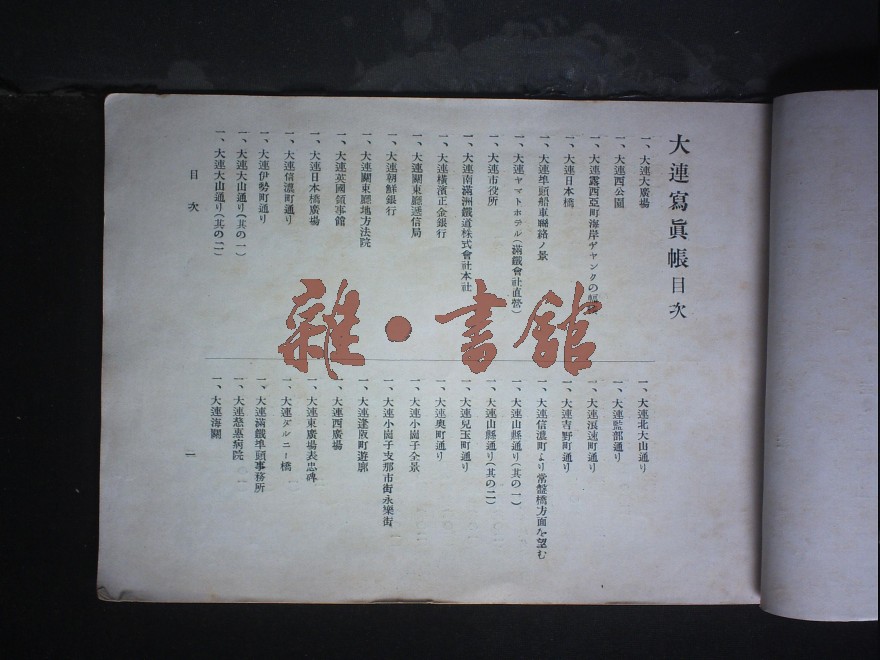 大連寫眞帳目次
一、大連大廣場
一、大連西公園
一、大連露西亞町海岸ヂャンクの
一、大連日本橋
一、大連埠頭船車聯絡ノ景
一、大連ヤマトホテル(滿鐵會社直營)
一、大連市役所
一、大連南滿洲鐵道株式會社本社
一、大連橫濱正金銀行
一、大連關東廳遞信局
一、大連朝鮮銀行
一、大連關東廳地方法院
一、大連英國領事館
一、大連日本橋廣場
一、大連信濃町通り
一、大連伊勢町通り
一、大連大山通り(其の一)
一、大連大山通り(其の二)
一、大連北大山通り
一、大連監部通り
一、大連浪速町通り
一、大連吉野町通り
一、大連信濃町より常盤橋方面を望む
一、大連山縣通り(其の一)
一、大連山縣通り(其の二)
一、大連兒玉町通り
一、大連奧町通り
一、大連小崗子全景
一、大連小崗子支那市街永樂街
一、大連逢阪町遊廓
一、大連西廣場
一、大連東廣場表忠碑
一、大連ダルニー橋
一、大連滿鐵埠頭事務所
一、大連慈惠病院
一、大連海關
目次
一
雜·書館